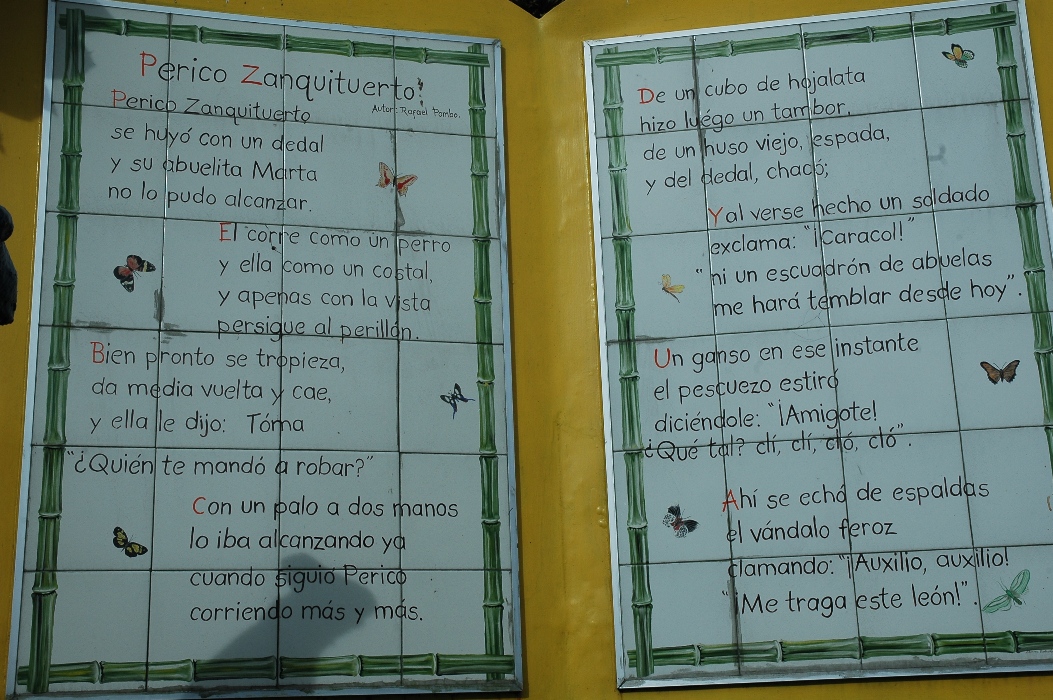 Perico Zanquituerto!
Autor: Rafael Pombo.
Perico Zanquituerto
se huyó con un dedal
y su abuelita Marta
no lo pudo alcanzar.
El corre como un perro
y ella como un costal,
y apenas con la vista
persigue al perillán.
Bien pronto se tropieza,
da media vuelta y cae,
y ella le dijo: Tóma
"¿Quién te mandó a robar?"
Con un palo a dos manos
lo iba alcanzando ya
cuando siguió Perico
corriendo más y más.
De un cubo de hojalata
hizo luégo un tambor,
de un huso viejo, espada,
y del dedal, chacó;
Y al verse hecho un soldado
exclama: "¡Caracol!"
"ni un escuadrón de abuelas
me hará temblar desde hoy".
Un ganso en ese instante
el pescuezo estiró
diciéndole: "¡Amigote!
¿Qué tal? clí, clí, cló, cló".
Ahí se echó de espaldas
el vándalo feroz
clamando: "¡Auxilio, auxilio!
"¡Me traga este león!".